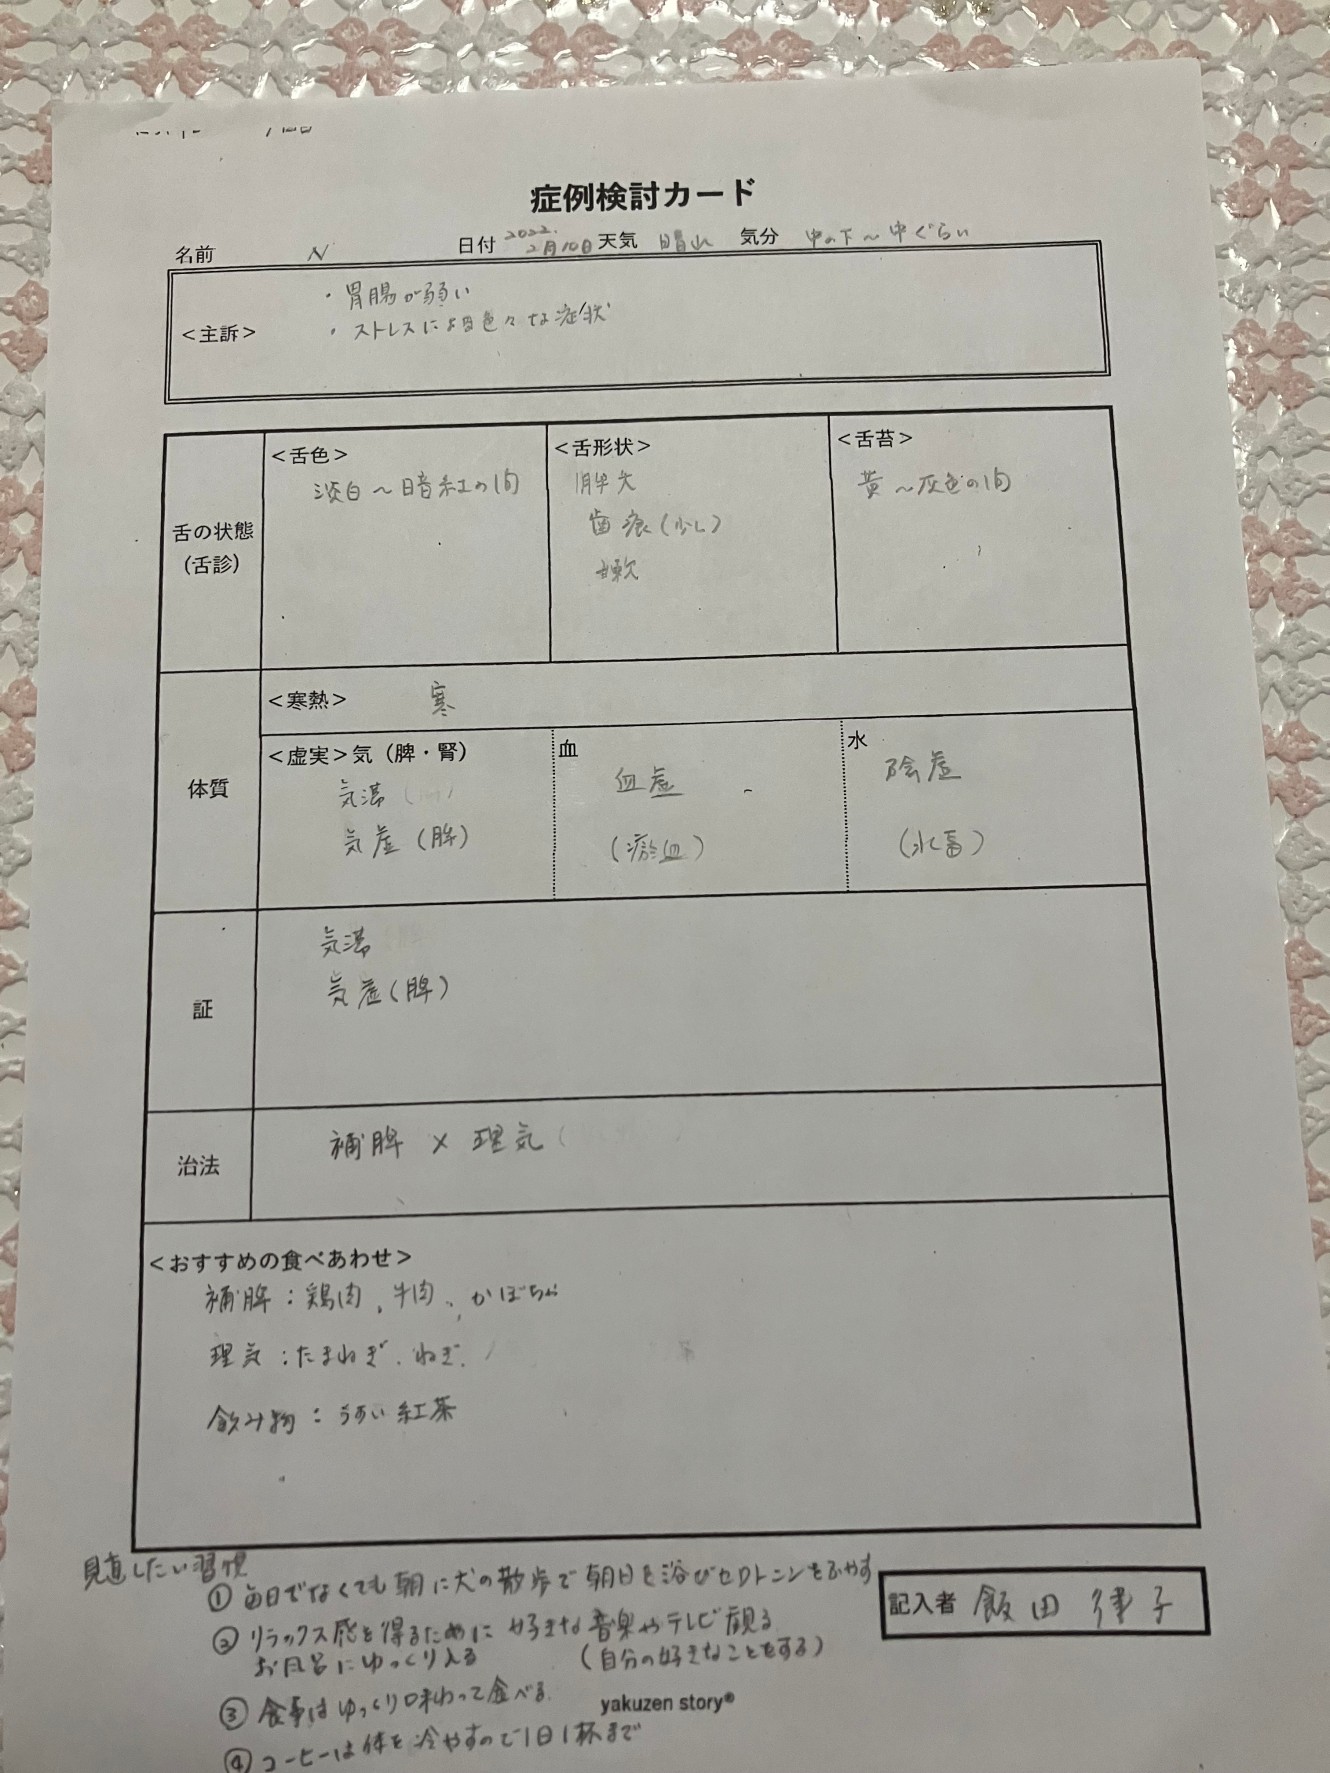 症例検討カード
名前 N 日付 2022. 2月10日 天気 晴れ 気分 中の下〜中ぐらい
<主訴>
・胃腸が弱い
・ストレスによる色々な症状
舌の状態
(舌診)
<舌色>
淡白〜暗紅の間
<舌形状>
胖大
歯痕(少し)
嫩
<舌苔>
黄〜灰色の間
体質
<寒熱> 寒
<虚実>気(脾・腎)
気滞
気虚(脾)
血
血虚
(瘀血)
水
陰虚
(水蓄)
証
気滞
気虚(脾)
治法
補脾 × 理気
<おすすめの食べあわせ>
補脾:鶏肉、牛肉、かぼちゃ
理気:たまねぎ、ねぎ、
飲み物:うすい紅茶
見直したい習慣
① 毎日でなくても朝に犬の散歩で朝日を浴びセロトニンをふやす
② リラックス感を得るために好きな音楽やテレビ観る
お風呂にゆっくり入る (自分の好きなことをする)
③ 食事はゆっくり味わって食べる
④ コーヒーは体を冷やすので1日1杯まで
記入者 飯田 律子
yakuzen story®